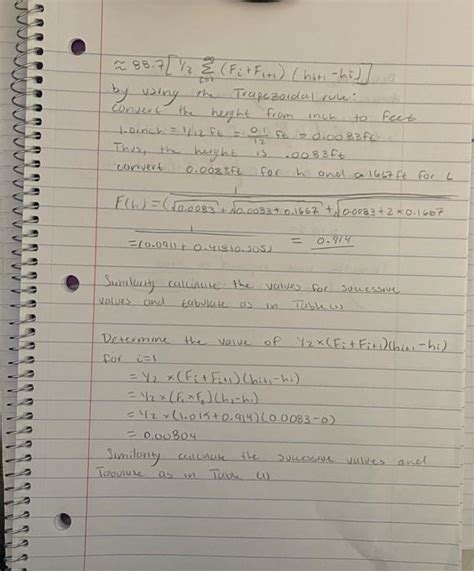 ≈ 88.7 [ 1/2 Σ i=1 (Fi + Fi+1) (hi+1 - hi) ]
by using the Trapezoidal rule:
convert the height from inch to feet
1.0inch = 1/12 ft = 0.1/12 ft = 0.0083ft
Thus, the height is .0083ft
convert 0.0083ft for h and 0.1667ft for L
F(h) = 1/(√0.0083 + √0.0083+0.1667 + √0.0083+2×0.1667
= 1/(0.0911 + 0.418) = 0.914
Similarity calculate the values for successive
values and tabulate as in Table(1)
Determine the value of 1/2×(Fi+Fi+1)(hi+1-hi)
for i=1
= 1/2 ×(Fi+Fi+1)(hi+1-hi)
= 1/2×(F1×F2)(h2-h1)
= 1/2×(1.015+0.914)(0.0083-0)
= 0.00804
Similarity calculate the successive values and
Tabulate as in Table (1)